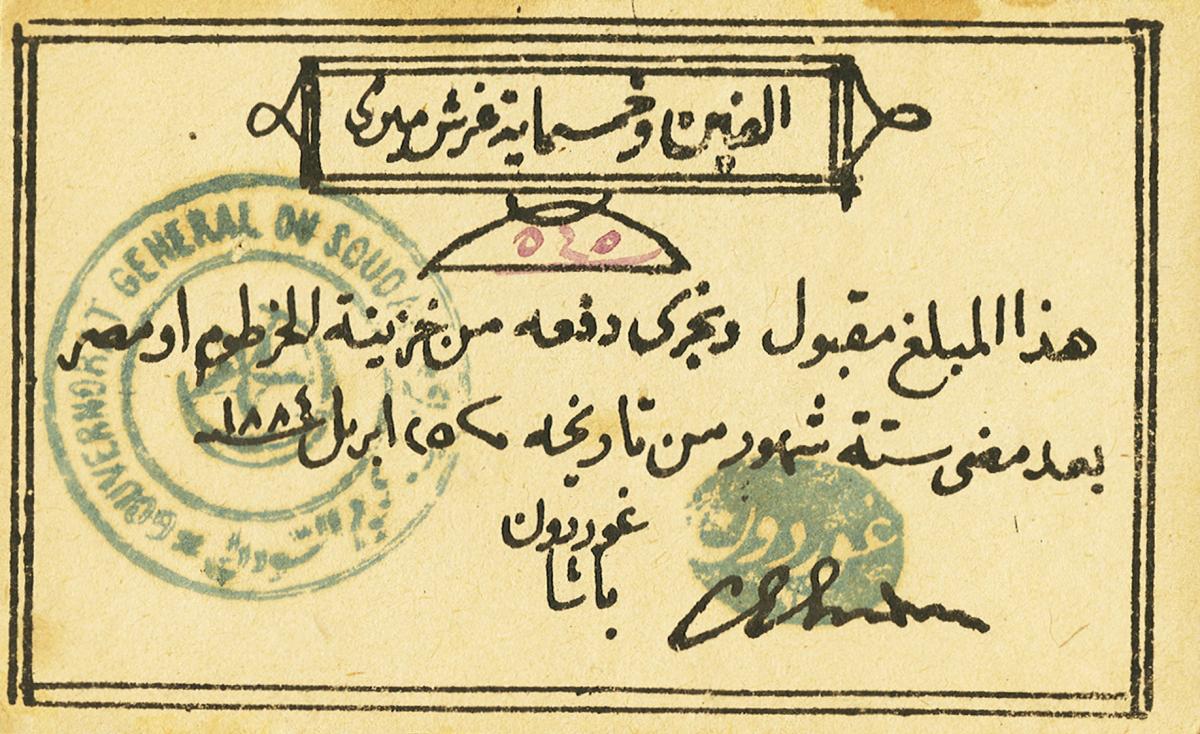 الفين وخمسماية غرش ميرى
٥٤٥
هذا المبلغ مقبول ويجرى دفعه من خزينة الخرطوم او مصر
بعد مضى ستة شهور من تاريخه ٢٥ ابريل ١٨٨٤
غوردون
باشا
غوردون
GOUVERNORAT GENERAL DU SOUDAN